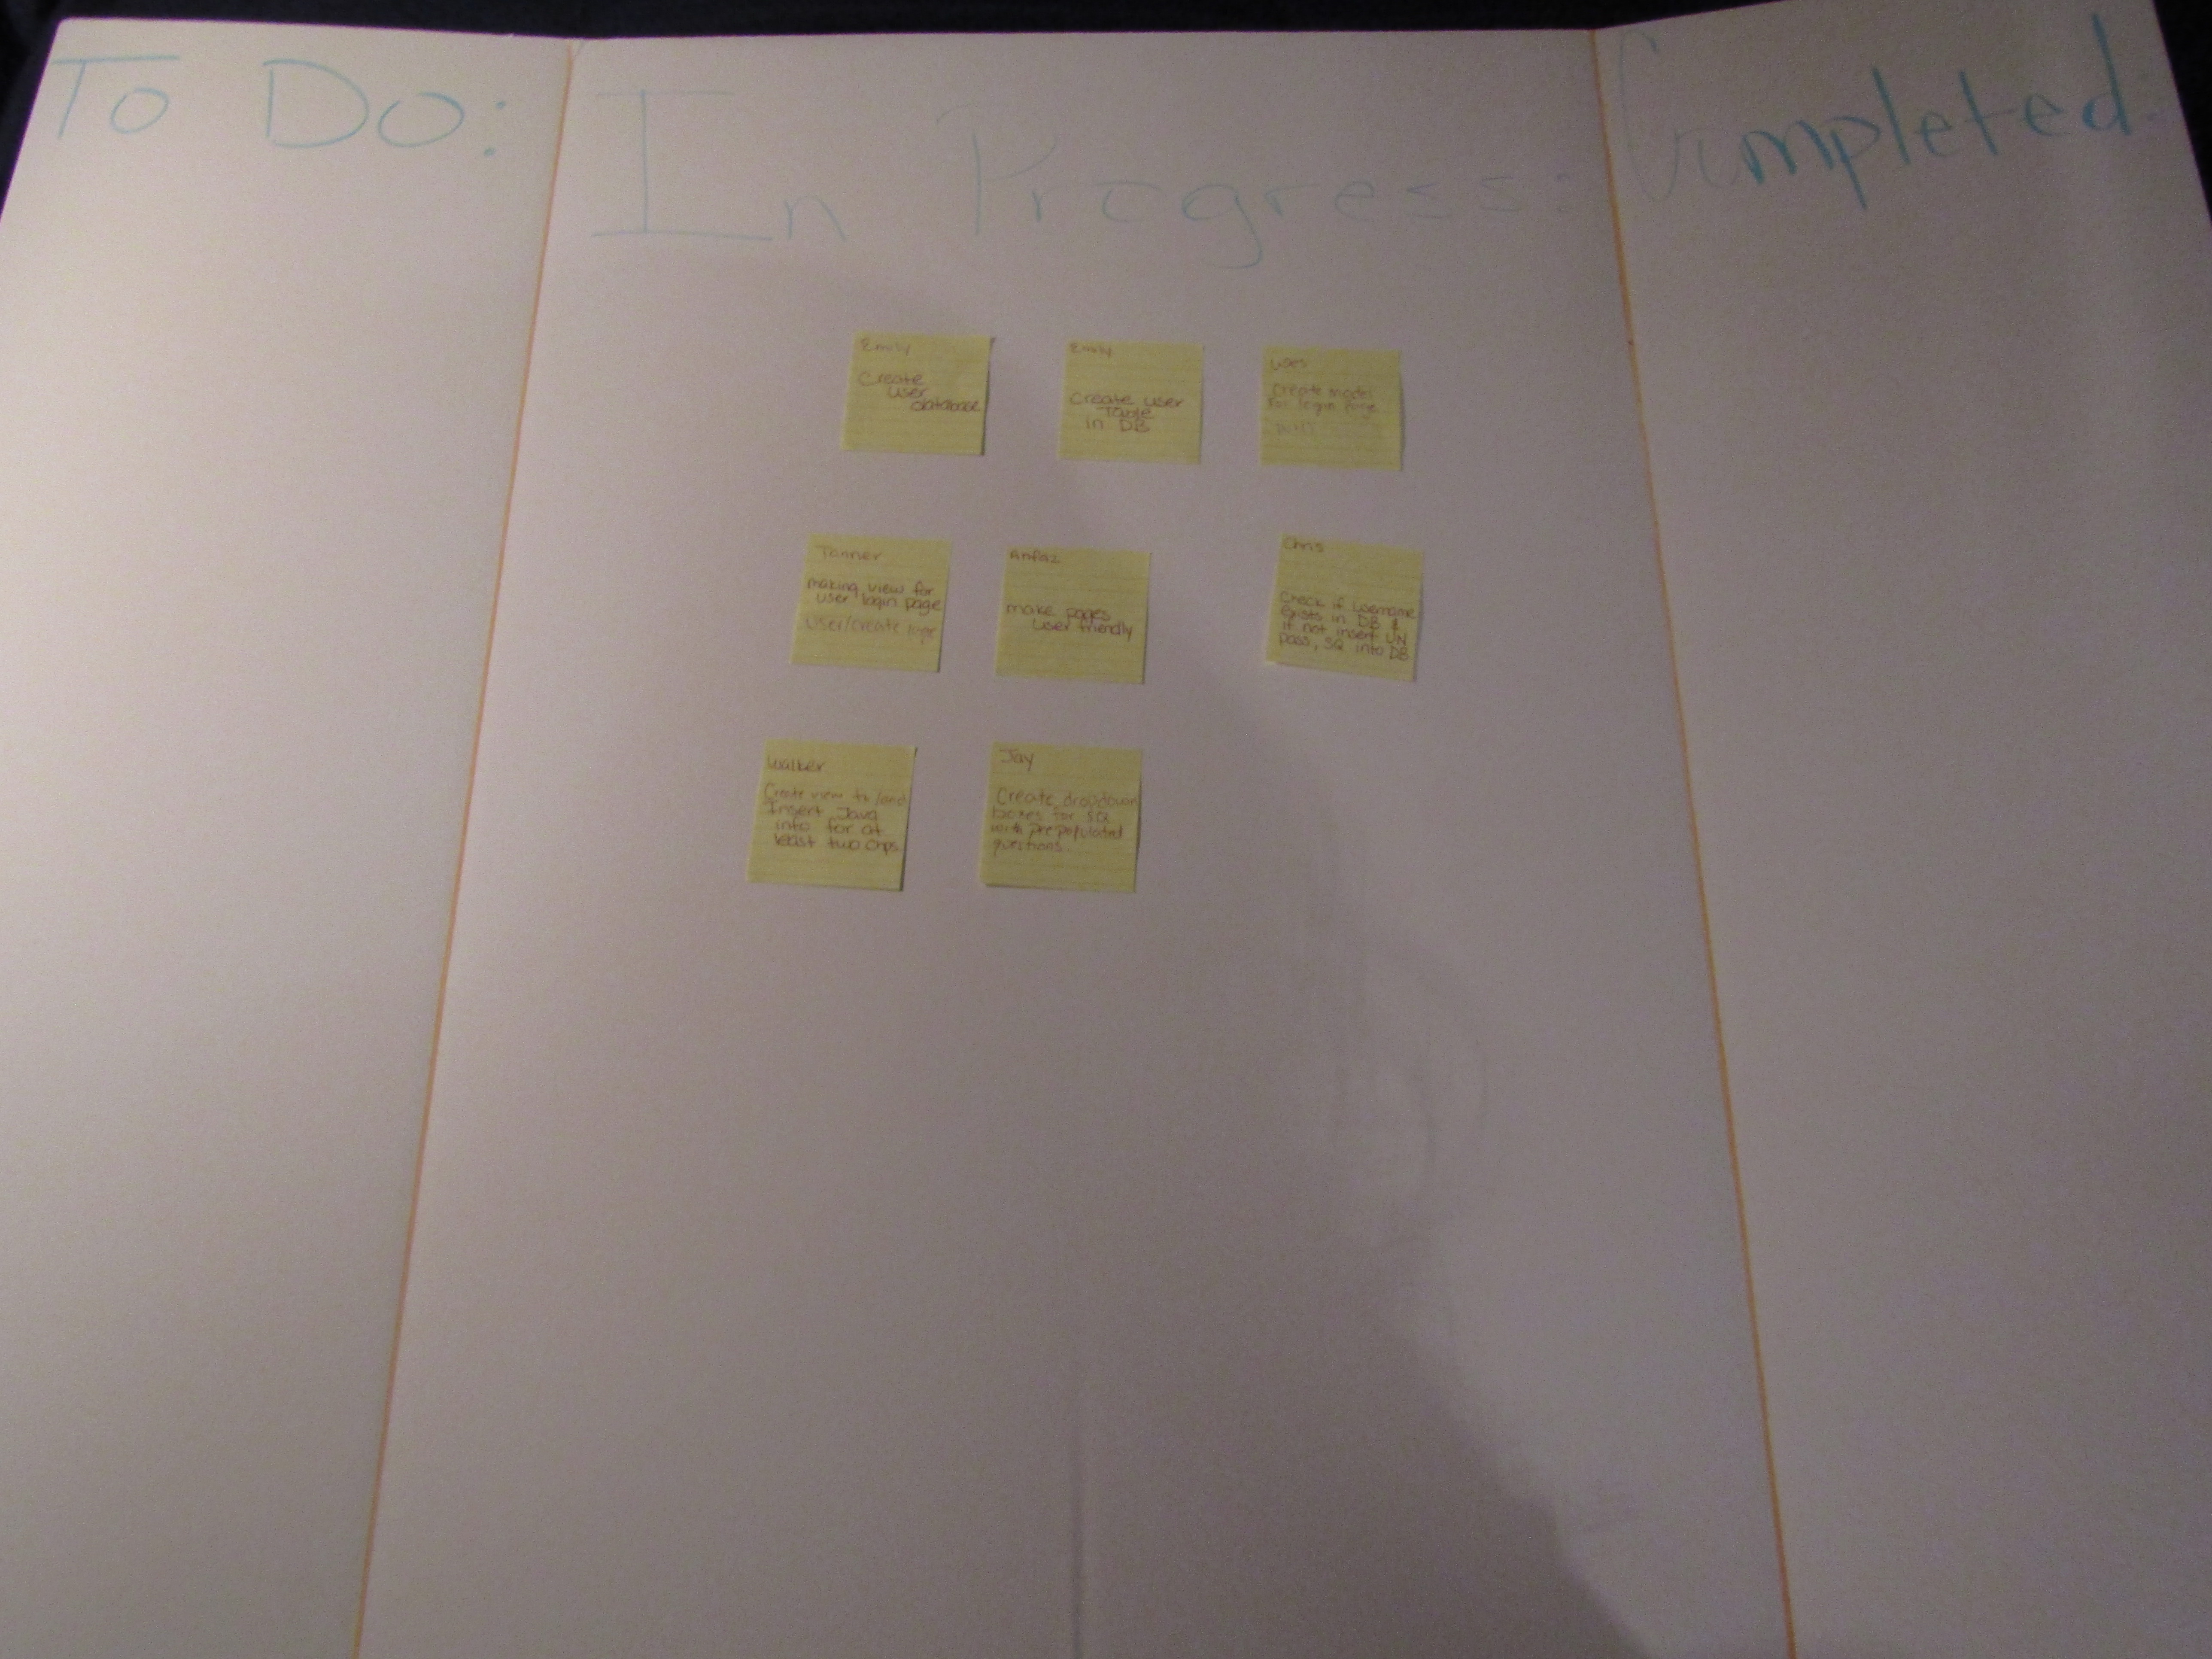 To Do:
In Progress:
Completed:
Emily
Create
user
database
Emily
Create user
Table
in DB
Create model
for login page
Tanner
making view for
user login page
User/create
Anfaz
make pages
user friendly
Chris
Check if username
exists in DB &
if not insert UN
pass, SQ into DB
Walker
Create view to
Insert Java
into for at
least two chps.
Jay
Create dropdown
boxes for SQ
with prepopulated
questions.